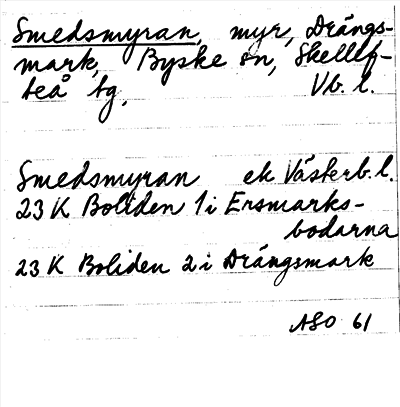 Smedsmyran, myr, Drängs-
mark, Byske sn, Skellef-
teå tg, Vb. l.
Smedsmyran ek Västerb. l.
23 K Boliden 1 i Ersmarks-
bodarna
23 K Boliden 2 i Drängsmark
ASO 61